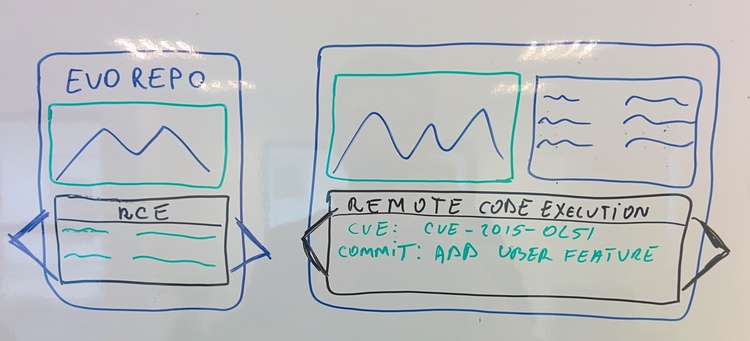 EVO REPO
RCE
REMOTE CODE EXECUTION
CVE: CVE-2015-0251
COMMIT: ADD UBER FEATURE